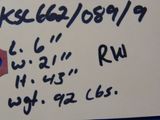 KSC662/089/9
L: 6"
W: 21" RW
H: 43"
Wgt. 92 Lbs.